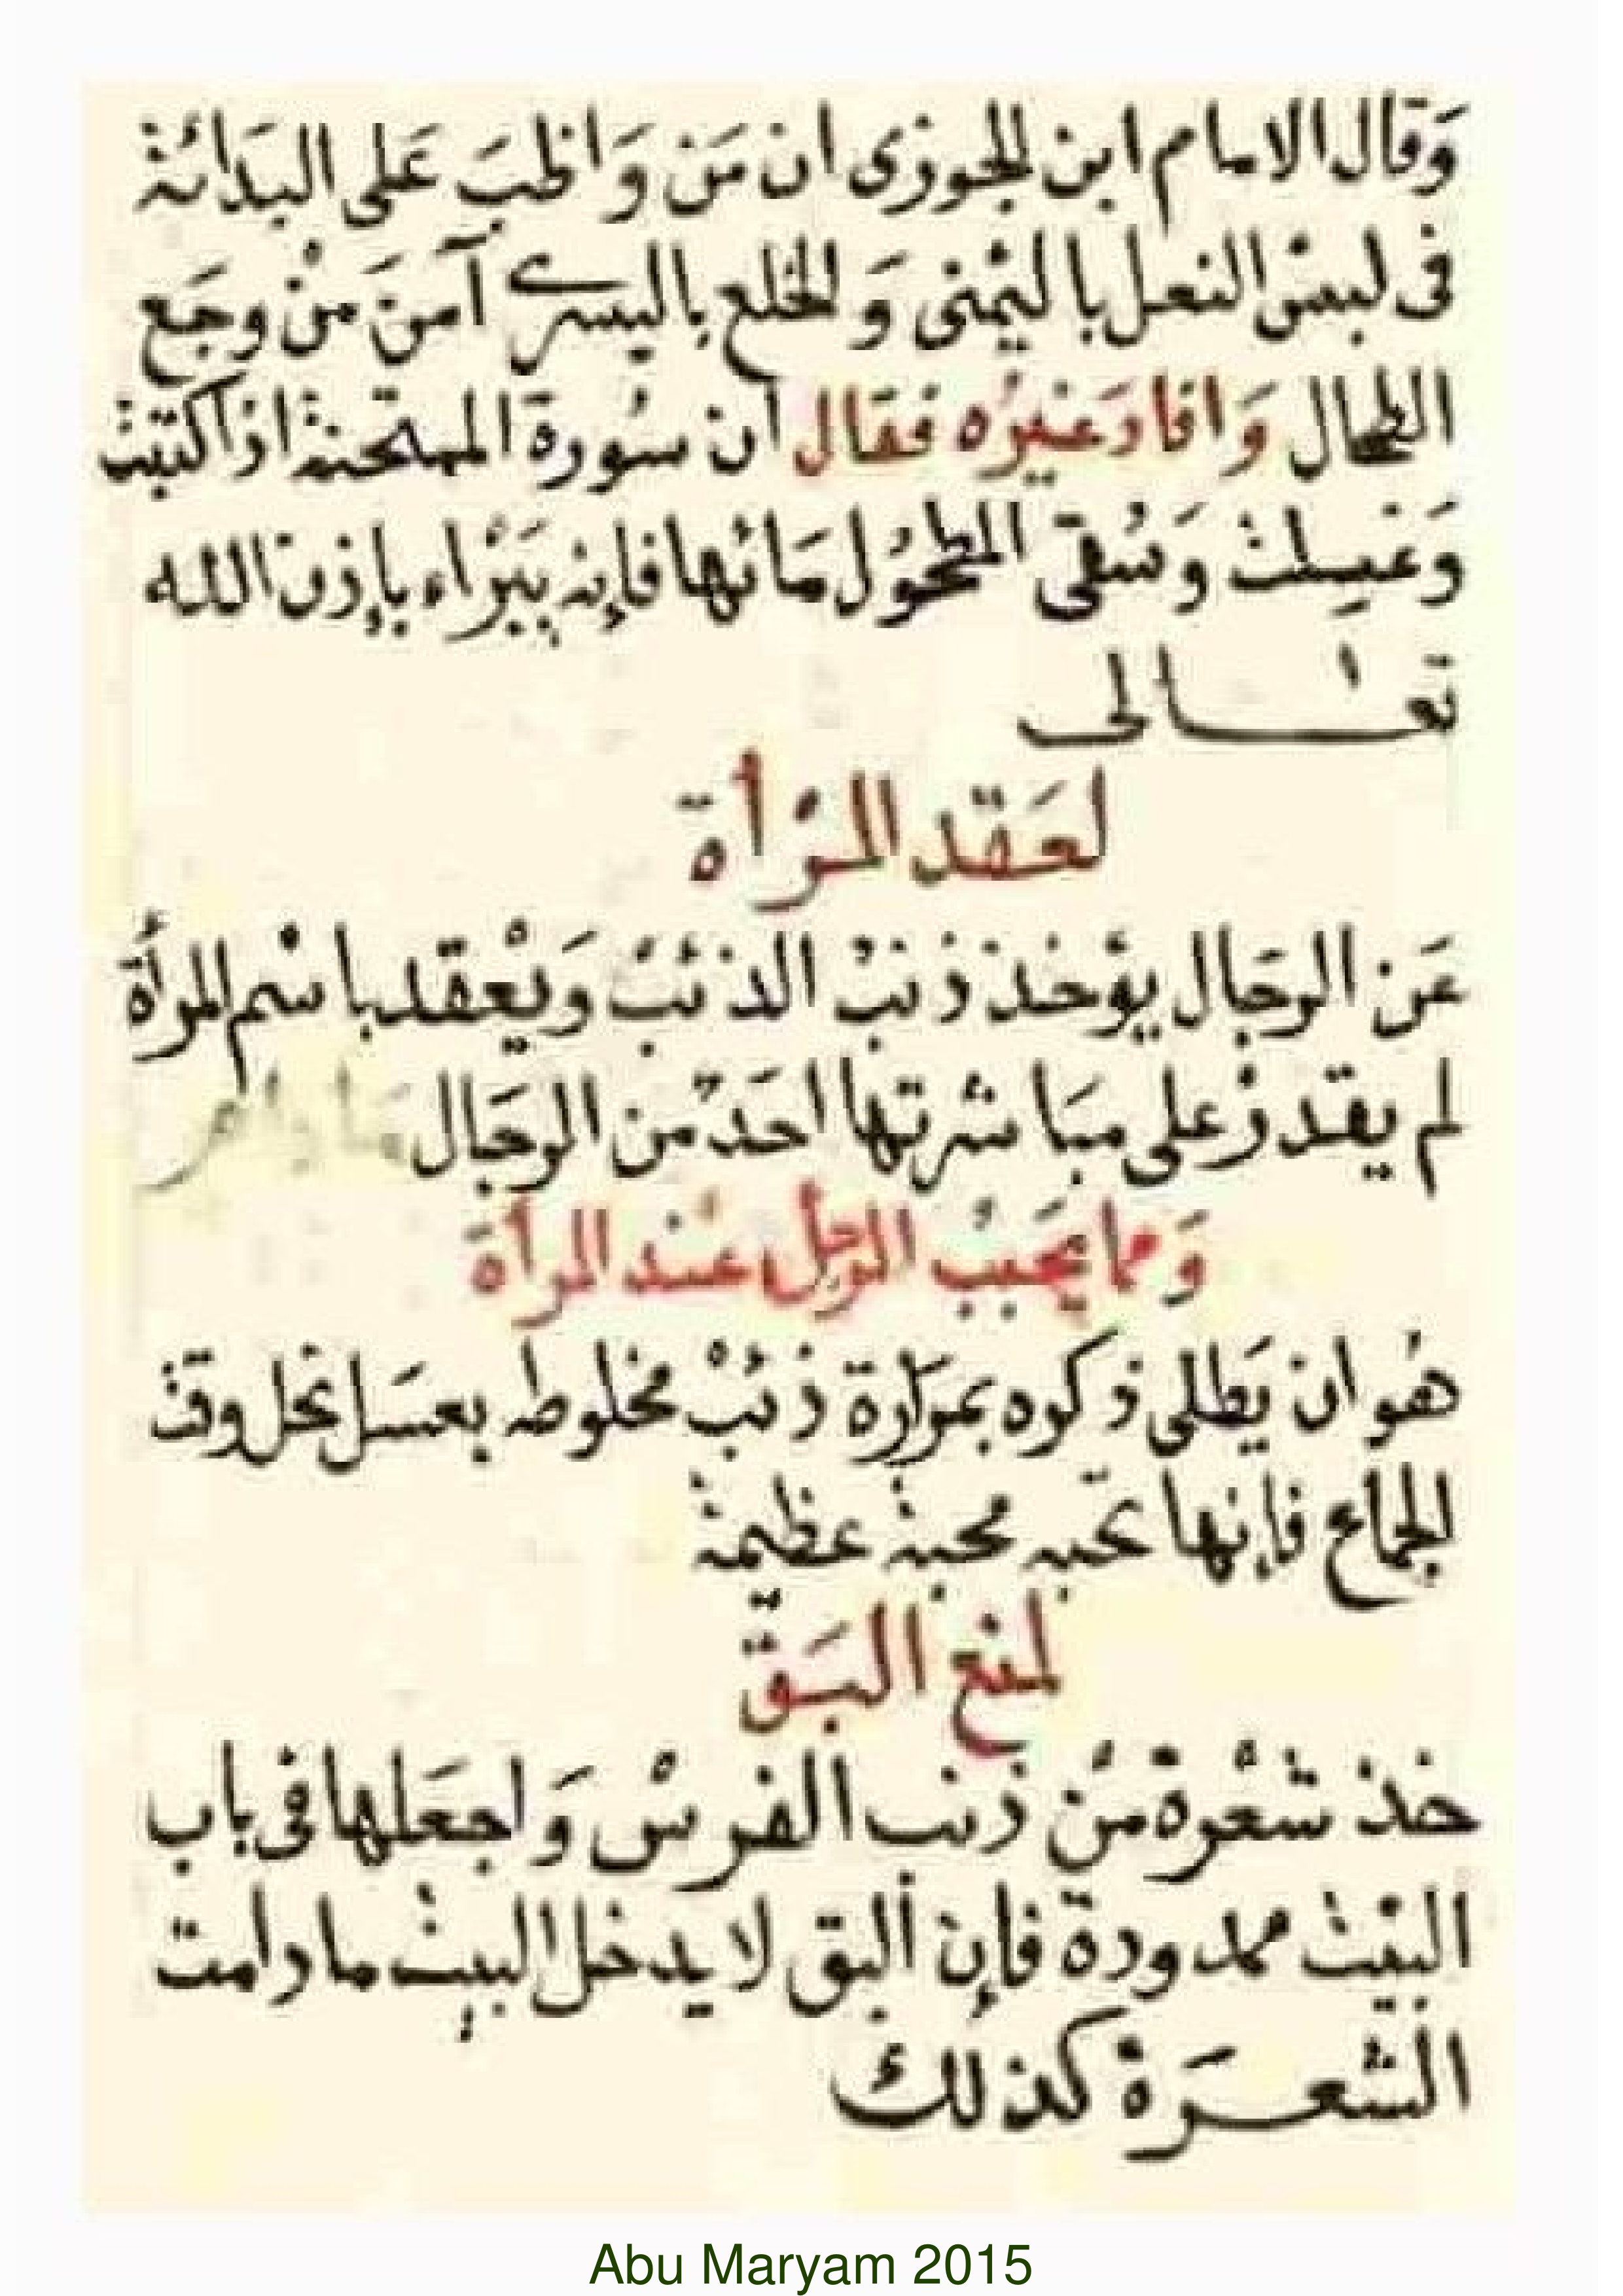 وَقال الامام ابن الجوزى ان مَن وَاظبَ عَلى البدَائة
فى لبسْ النعل باليمْنى وَالخلع باليسرى آمنَ منْ وجَع
الطحال وَافادَ غيرُه فقال ان سُورة الممتحنة اذا كتبت
وَغسِلت وَسُقى المطحُول مَائها فإنه يَبْراء بإذن الله
تعالى
لعَقد المرْأة
عَن الرجَال يؤخذ ذنبْ الذئبْ وَيعْقد باسْم المرأة
لم يقدرْ على مبَاشرتها احَدٌ من الرجَال مَا دام
وَمما يحَببُ الرجل عنْد المرأة
هُو ان يَطلى ذكره بمرَارة ذئبْ مخلوطه بعسَل نحْل وقت
الجماع فإنها تحبّه محبة عظيمة
لمنع البَقّ
خذ شعْرة منْ ذنب الفرسْ وَاجعَلها فى باب
البيْت ممدودة فإن ألبق لا يدخل البيت ما دامت
الشعرَة كذلك
Abu Maryam 2015